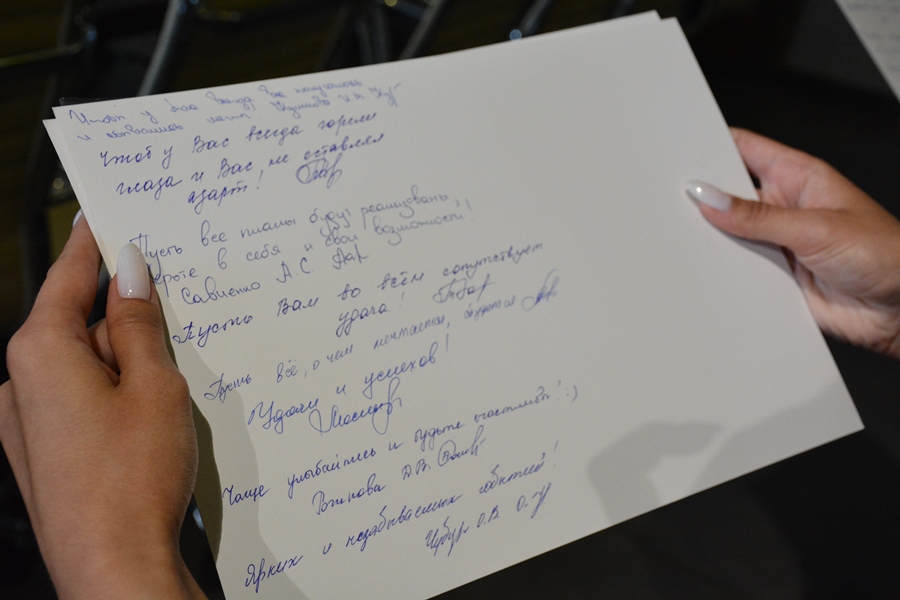 Чтоб у Вас всегда все получалось
и
Чтоб у Вас всегда горели
глаза и Вас не оставлял
азарт!
Пусть все планы будут реализованы,
верьте в себя и свои возможности!
Савченко А.С
Пусть Вам во всём сопутствует
удача!
Пусть всё, о чем мечтается, сбудется
Удачи и успехов!
Чаще улыбайтесь и будьте счастливы! :)
Д.В.
Ярких и незабываемых событий!
Чубур О.В.